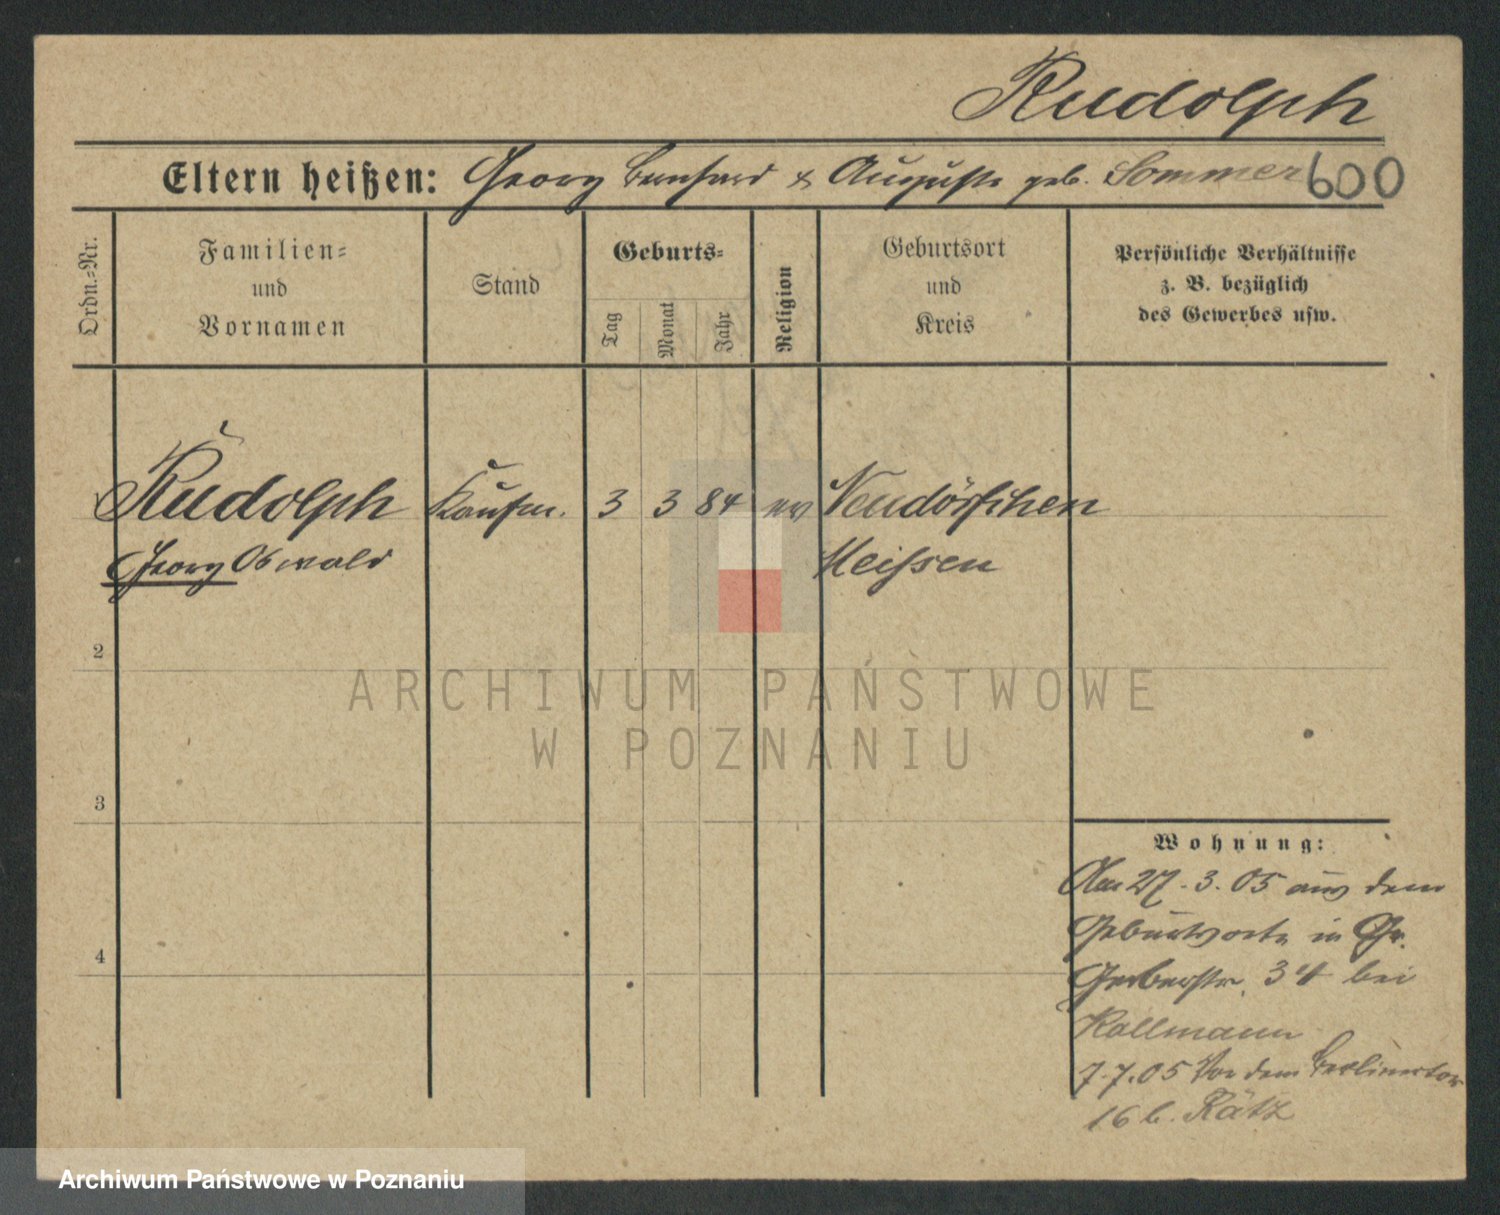 Rudolph
Eltern heißen: Georg Bernhard & Auguste geb. Sommer 600
Ordn.-Nr.
Familien-
und
Vornamen
Stand
Geburts-
Tag
Monat
Jahr
Religion
Geburtsort
und
Kreis
Persönliche Verhältnisse
z. B. bezüglich
des Gewerbes usw.
Rudolph Kaufm. 3 3 84 ev Neudörfchen
Georg Oswald Meißen
2
3
4
Wohnung:
Am 27.3.05 aus dem
Geburtsorte in Gr.
Gerberstr. 34 bei
Kollmann
7.7.05 Vor dem Berlinertor
16 b. Rätz
ARCHIWUM PAŃSTWOWE
W POZNANIU
Archiwum Państwowe w Poznaniu